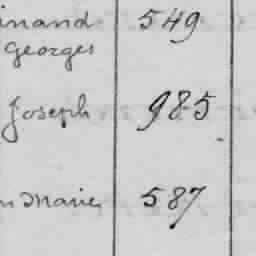 inand 549
Georges
Joseph 985
n Marie, 587